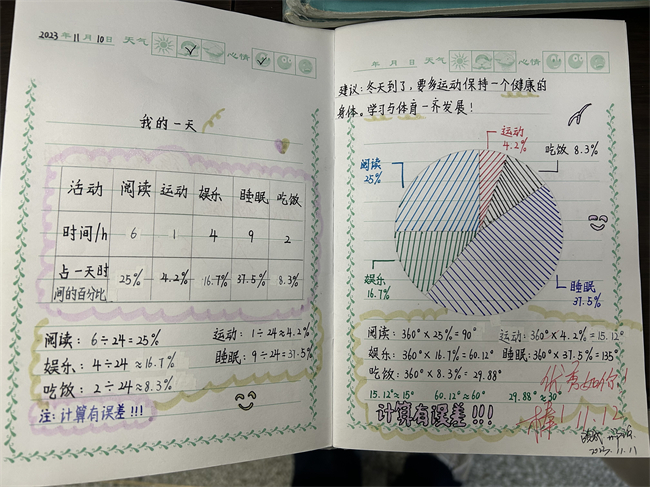 2023年11月10日 天气 心情
我的一天
活动 阅读 运动 娱乐 睡眠 吃饭
时间/h 6 1 4 9 2
占一天时间的百分比 25% 4.2% 16.7% 37.5% 8.3%
阅读：6÷24=25% 运动：1÷24≈4.2%
娱乐：4÷24≈16.7% 睡眠：9÷24=37.5%
吃饭：2÷24≈8.3%
注：计算有误差!!!
年 月 日 天气 心情
建议：冬天到了，要多运动保持一个健康的
身体。学习与体育一齐发展！
运动
4.2%
吃饭 8.3%
阅读
25%
娱乐
16.7%
睡眠
37.5%
阅读：360°×25%=90° 运动：360°×4.2%=15.12°
娱乐：360°×16.7%=60.12° 睡眠：360°×37.5%=135°
吃饭：360°×8.3%=29.88°
15.12°≈15° 60.12°≈60° 29.88°≈30°
计算有误差!!!
优秀如你！
棒！11.12
2023.11.11